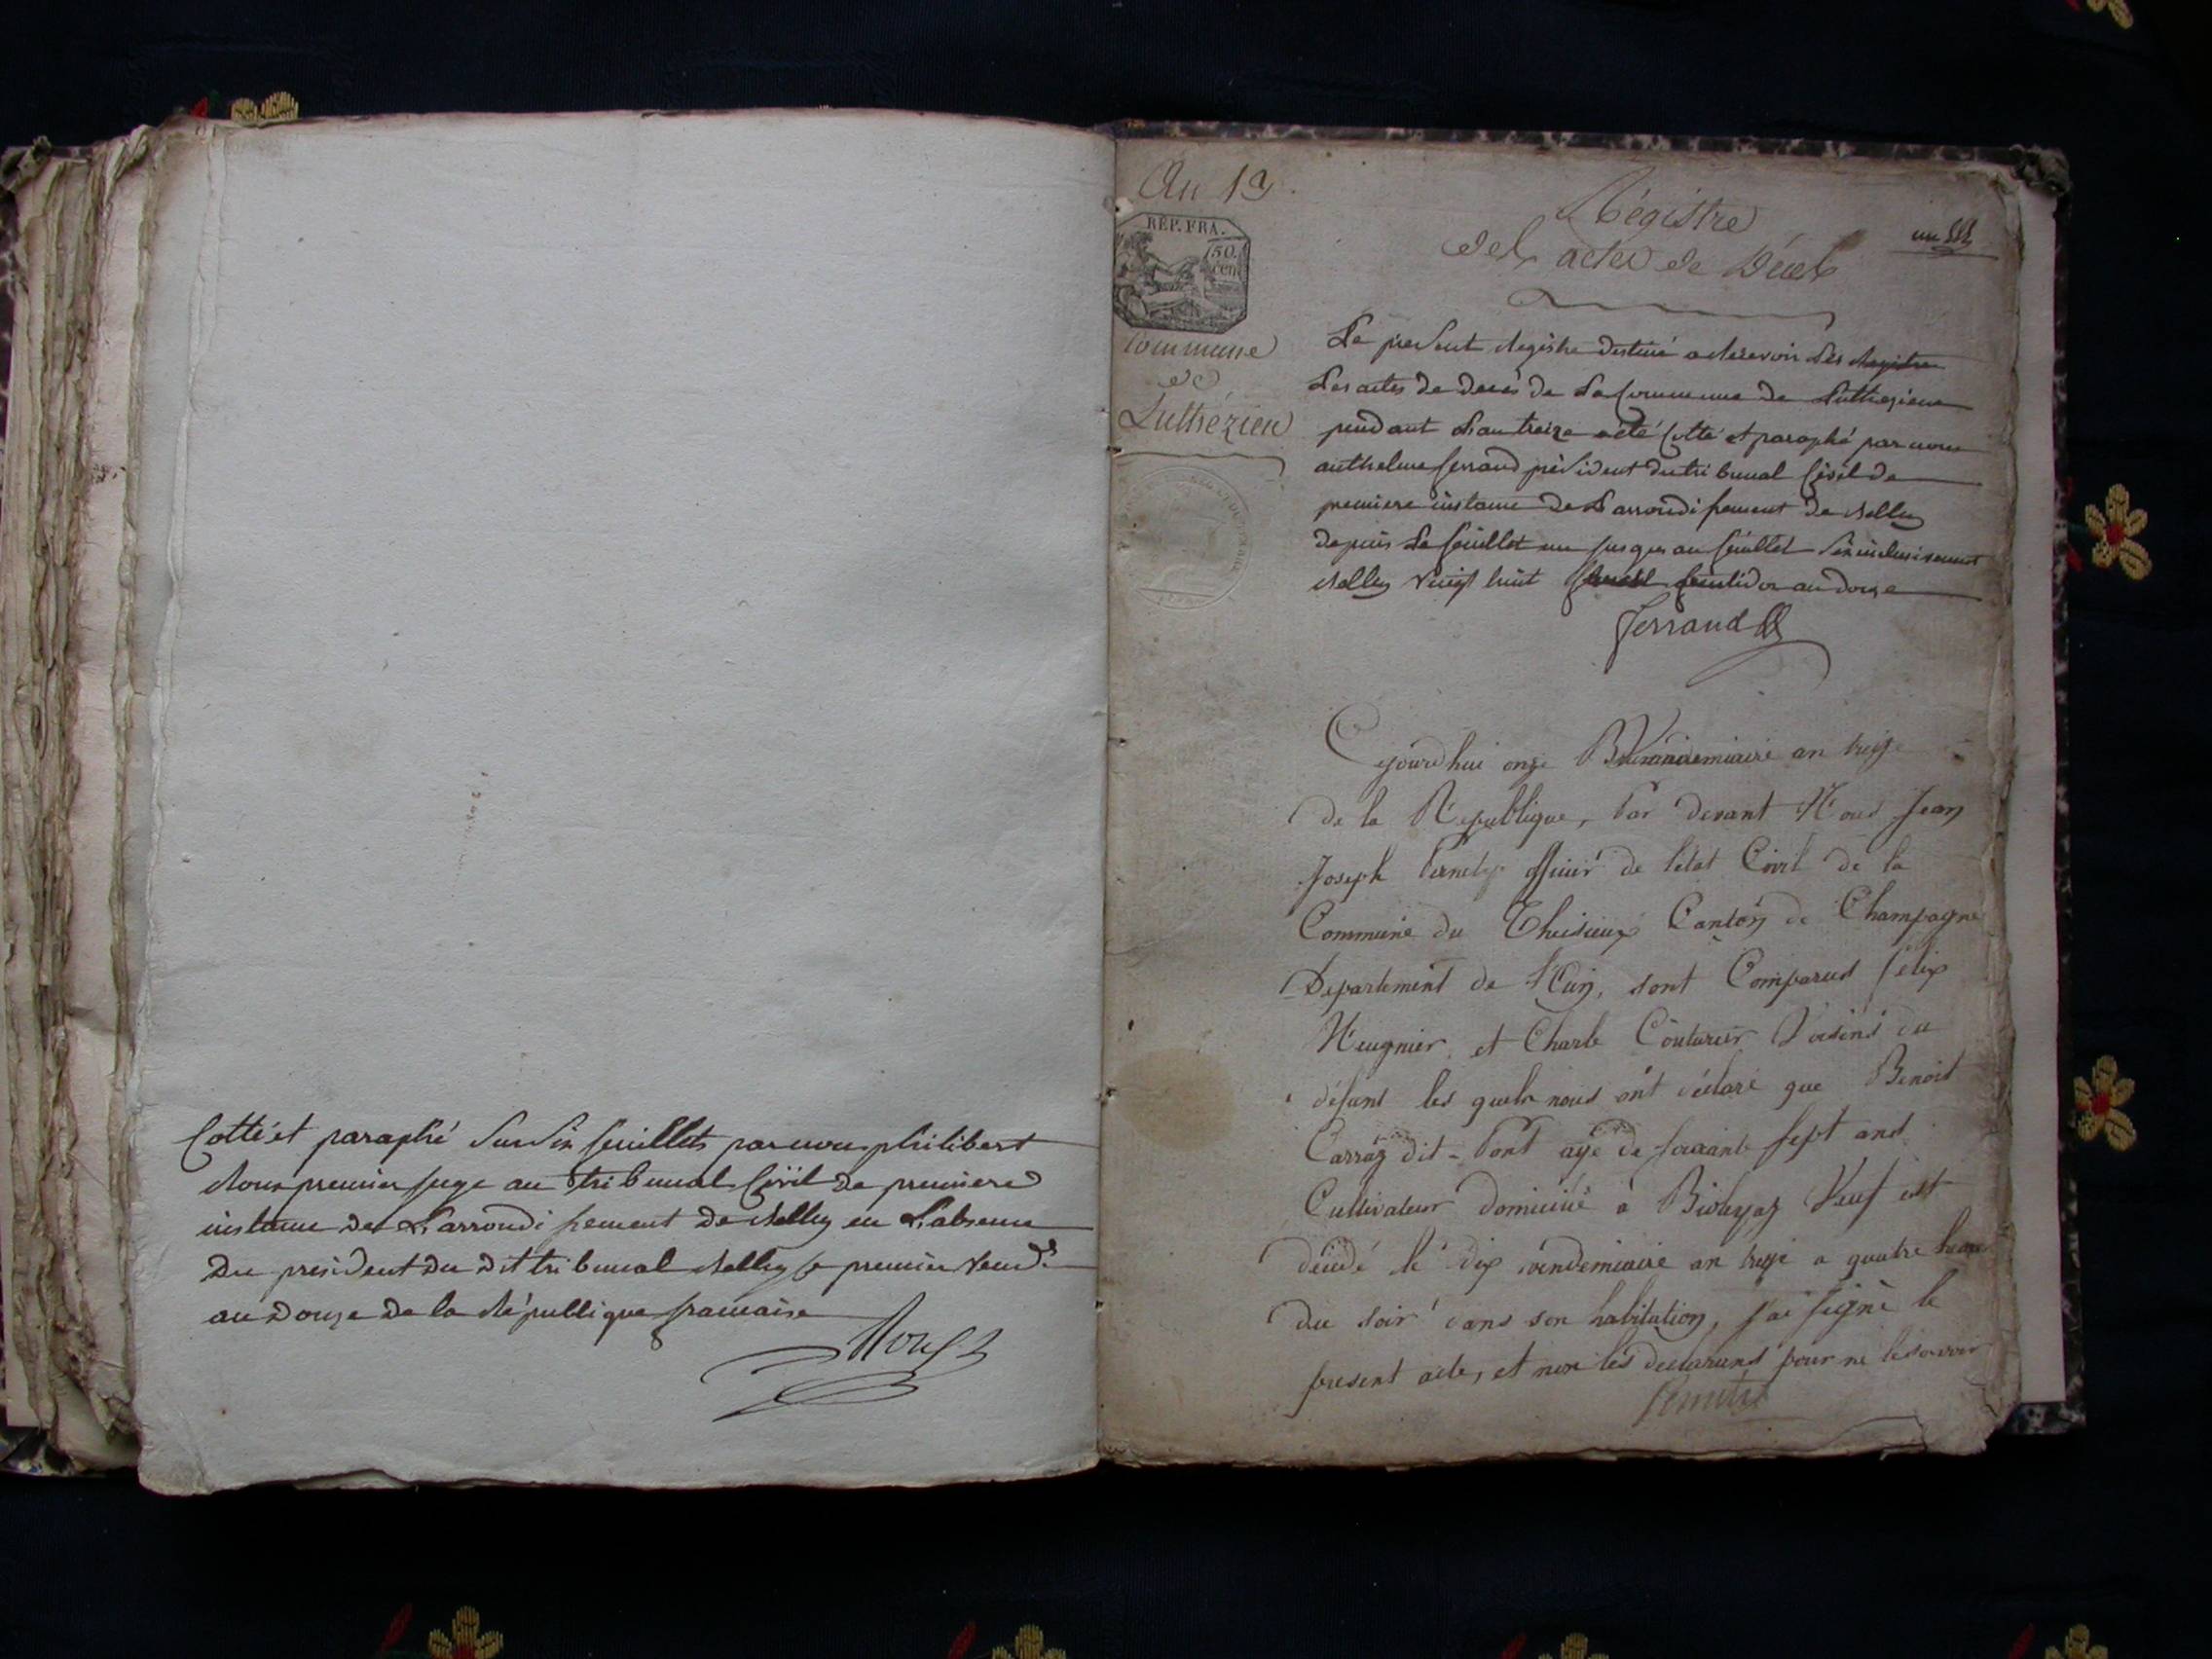 Cotté et paraphé sur six feuillets par nous philibert
Roux premier juge au tribunal Civil de premiere
instance de L'arrondissement de Belley en L'absence
Du président Du Dit tribunal Belley le premier vend.re
an Douze de la République francaise
Roux
An 13.
REP. FRA.
50.
cen.
Commune
de
Luthézieu
Régistre
des actes de Décès
un
Le present Registre destiné a Recevoir Les Registres
Les actes de Decès de La Commune de Luthezieu
pendant L'an treize a été Cotté et paraphé par nous
anthelme ferrand président du tribunal Civil de
premiere instance De L'arrondissement de Belley
depuis Le feuillet un jusques au feuillet six inclusivement
Belley vingt huit fructidor an douze
ferrand
Cejourdhui onze Vendemiaire an treize
de la Republique, Par devant Nous Jean
Joseph officier de letat Civil de la
Commune du Canton de Champagne
Departement de l'Ain, sont Comparus félix
Heugnier et Charle Couturier Voisins du
défunt les quels nous ont déclaré que Benoit
Carraz dit-Pont agé de soixante sept ans
Cultivateur domicilié a Bioleyaz Veuf est
décédé le dix vendemiaire an treize a quatre heures
du soir dans son habitation, j'ai signé le
present acte, et non les declarants pour ne le savoir